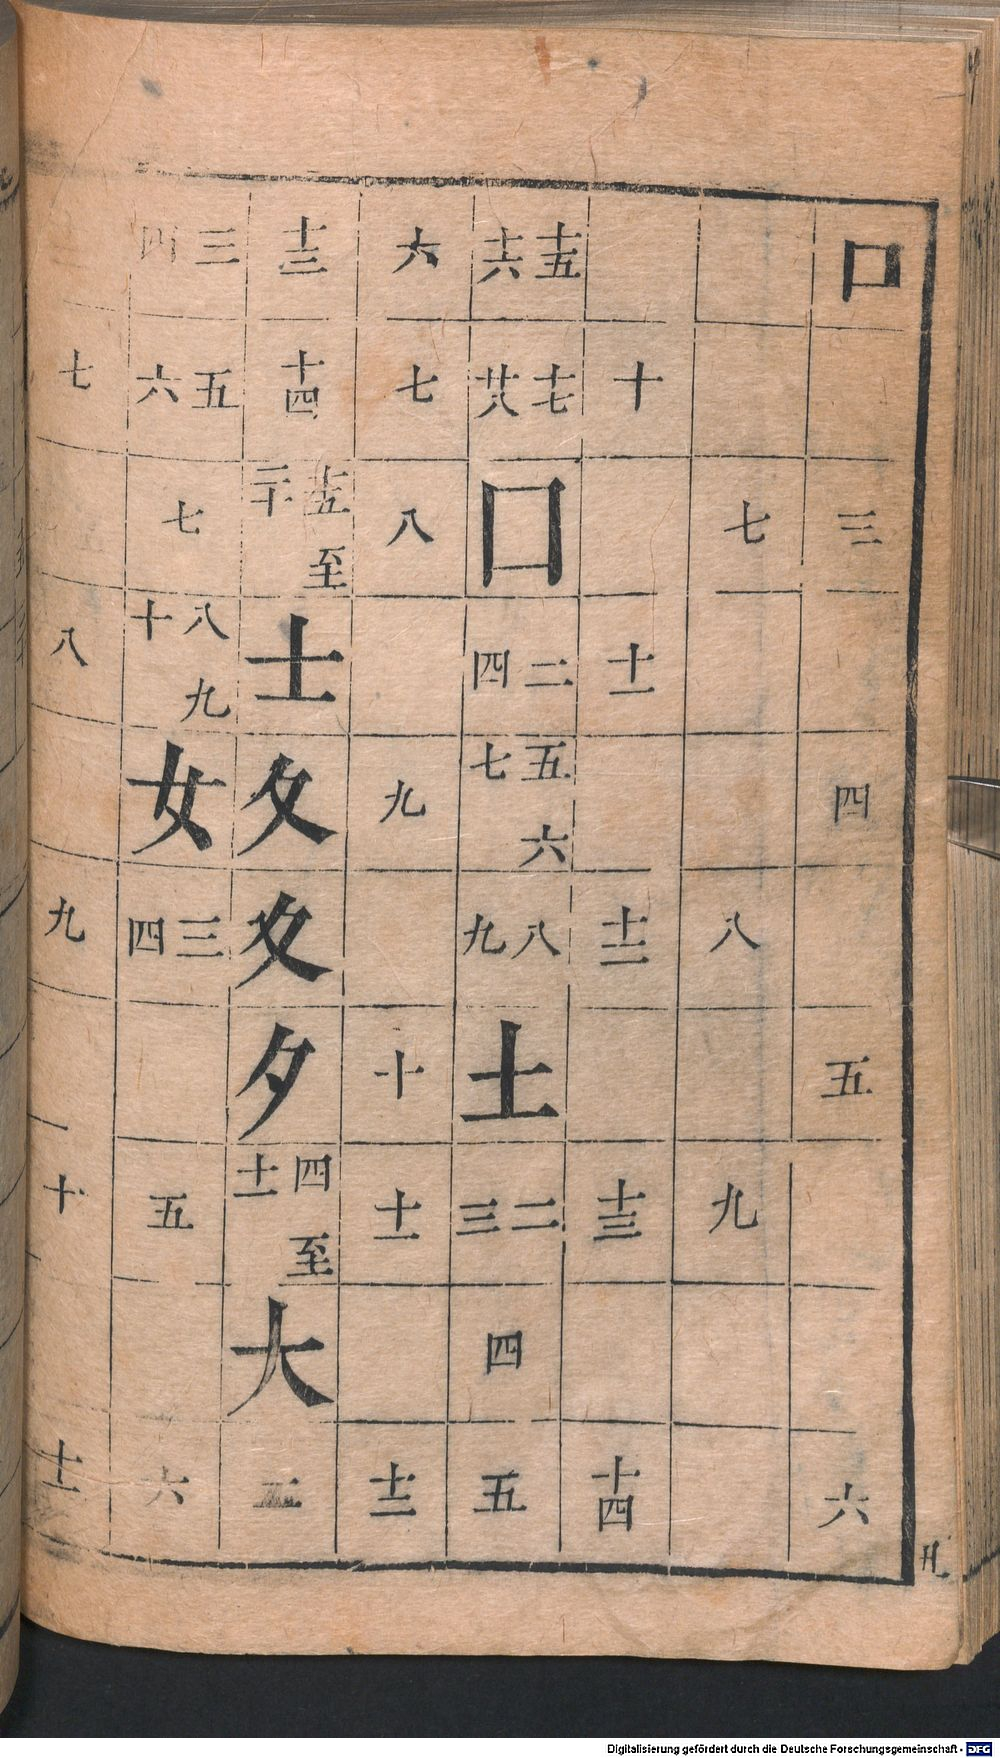 口 三 四 五 六
七 八 九
十 十一 十二 十三 十四
十五 十六 十七 廿八 囗 二 四 五 六 七 八 九 土 二 三 四 五
六 七 八 九 十 十一 十二
十三 十四 十五 至 二十 士 夂 夊 夕 四 至 十一 大
三 四 五 六 七 八 九 十 女 三 四 五 六
七 八 九 十 十一
Digitalisierung gefördert durch die Deutsche Forschungsgemeinschaft - DFG